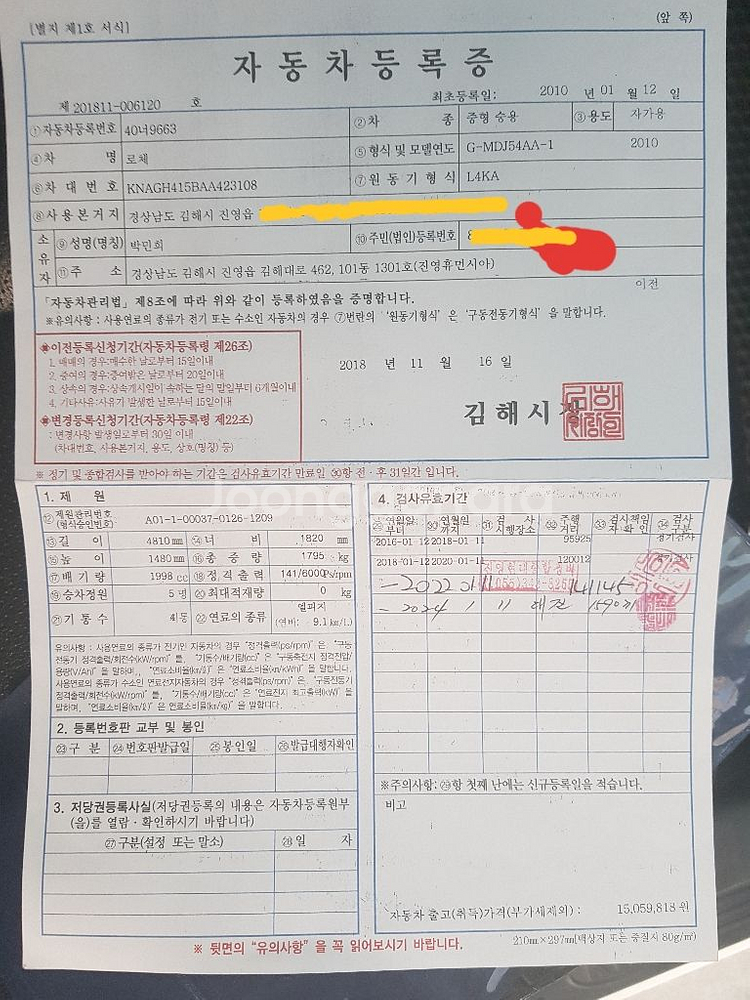 [별지 제1호 서식]
(앞 쪽)
자동차등록증
제 201811-006120 호
최초등록일: 2010 년 01 월 12 일
①자동차등록번호 40너9663 ②차 종 중형 승용 ③용도 자가용
④차 명 로체 ⑤형식 및 모델연도 G-MDJ54AA-1 2010
⑥차 대 번 호 KNAGH415BAA423108 ⑦원 동 기 형 식 L4KA
⑧사 용 본 거 지 경상남도 김해시 진영읍
소유자 ⑨성명(명칭) 박민희 ⑩주민(법인)등록번호 8
⑪주 소 경상남도 김해시 진영읍 김해대로 462, 101동 1301호(진영휴먼시아)
이전
「자동차관리법」제8조에 따라 위와 같이 등록하였음을 증명합니다.
※유의사항 : 사용연료의 종류가 전기 또는 수소인 자동차의 경우 ⑦번란의 '원동기형식'은 '구동전동기형식'을 말합니다.
※이전등록신청기간(자동차등록령 제26조)
1. 매매의 경우:매수한 날로부터 15일이내
2. 증여의 경우:증여받은 날로부터 20일이내
3. 상속의 경우:상속개시일이 속하는 달의 말일부터 6개월이내
4. 기타사유:사유가 발생한 날로부터 15일이내
※변경등록신청기간(자동차등록령 제22조)
: 변경사항 발생일로부터 30일 이내
(차대번호, 사용본거지, 용도, 상호(명칭) 등)
2018 년 11 월 16 일
김해시장
※ 정기 및 종합검사를 받아야 하는 기간은 검사유효기간 만료일 ㉚항 전·후 31일간 입니다.
1. 제 원
⑫제원관리번호 (형식승인번호) A01-1-00037-0126-1209
⑬길 이 4810㎜ ⑭너 비 1820 ㎜
⑮높 이 1480㎜ ⑯총 중 량 1795 ㎏
⑰배 기 량 1998 cc ⑱정 격 출 력 141/6000Ps/rpm
⑲승차정원 5 명 ⑳최대적재량 0 ㎏
㉑기 통 수 4기통 ㉒연료의 종류 휘발유 (연비: 9.1㎞/L)
유의사항 : 사용연료의 종류가 전기인 자동차의 경우 "정격출력(ps/rpm)"은 "구동
전동기 정격출력/회전수(kW/rpm)"를, "기통수/배기량(cc)"은 "구동축전지 정격전압/
용량(V/Ah)"을 말하며,
사용연료의 종류가 수소인 연료전지자동차의 경우 "정격출력(ps/rpm)"은 "구동전동기
정격출력/회전수(kW/rpm)"를, "기통수/배기량(cc)"은 "연료전지 최고출력(kW)"을
말하며, "연료소비율(㎞/ℓ)"은 "연료소비율(㎞/㎏)"을 말합니다.
2. 등록번호판 교부 및 봉인
㉓구 분 ㉔번호판발급일 ㉕봉인일 ㉖발급대행자확인
3. 저당권등록사실(저당권등록의 내용은 자동차등록원부
(을)를 열람·확인하시기 바랍니다)
㉗구분(설정 또는 말소) ㉘일 자
4. 검사유효기간
㉙연월일부터 ㉚연월일까지 ㉛검사시행장소 ㉜주행거리 ㉝검사책임자확인 ㉞검사구분
2016-01-12 2018-01-11 95925 정기검사
2018-01-12 2020-01-11 120012 정기검사
-2022 01 11 141145
-2024 1 11
※주의사항: ㉙항 첫째 난에는 신규등록일을 적습니다.
비고
자동차 출고(취득)가격(부가세제외) : 15,059,818 원
※ 뒷면의 "유의사항"을 꼭 읽어보시기 바랍니다.
210㎜×297㎜[백상지 또는 중질지 80g/㎡]